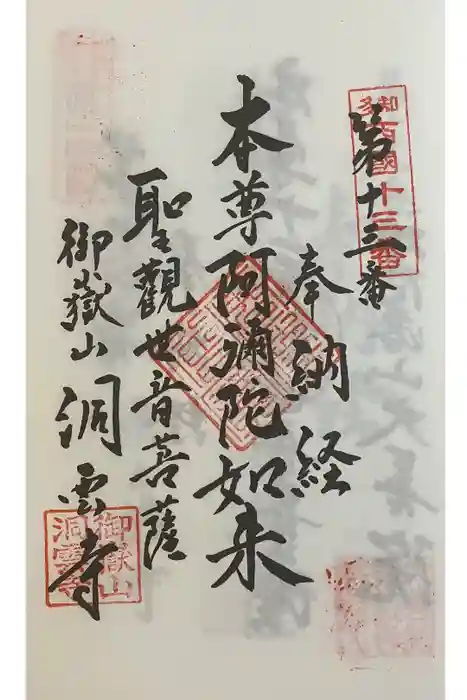 第十三番
奉納経
本尊阿彌陀如来
聖觀世音菩薩
御嶽山洞雲寺
西國十三番
御嶽山
洞雲寺